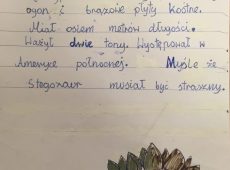 ogon i brązowe płyty kostne.
Miał osiem metrów długości.
Ważył dwie tony. Występował w
Ameryce północnej. Myślę że
Stegozaur musiał być straszny.